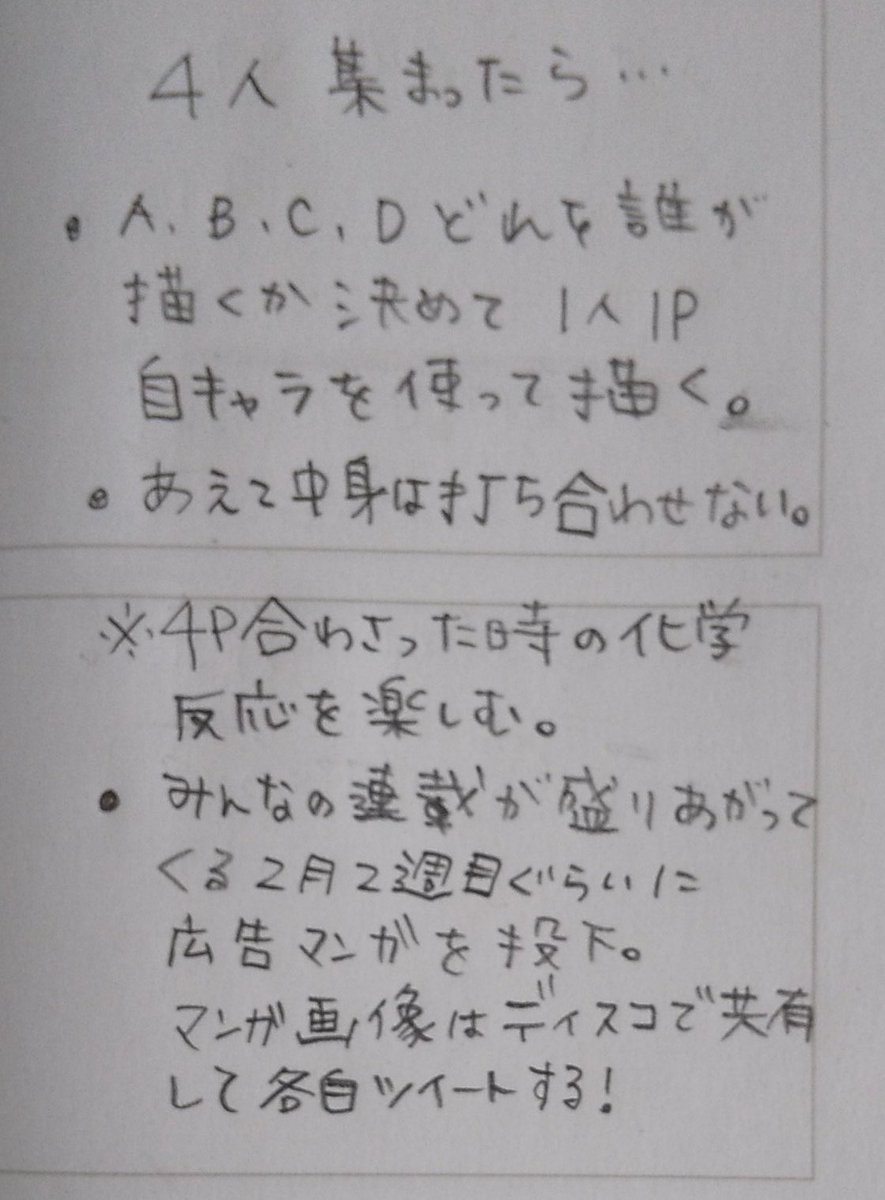 4人 集まったら…
• A、B、C、Dどれを誰が
描くか決めて 1人1P
自キャラを使って描く。
• あえて中身は打ち合わせない。
※4P合わさった時の化学
反応を楽しむ。
• みんなの連載が盛りあがって
くる2月2週目ぐらいに
広告マンガを投下。
マンガ画像はディスコで共有
して各自ツイートする!